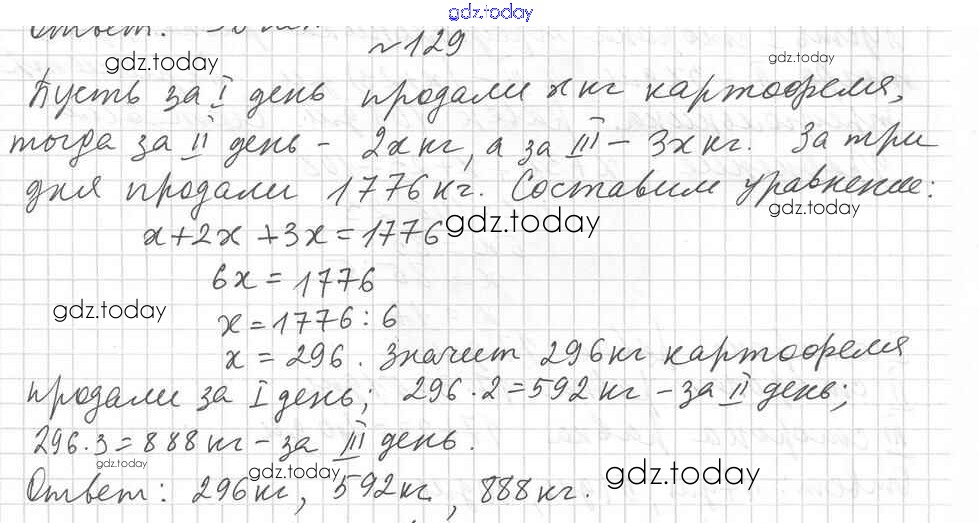 gdz.today
Ответ:
№129
gdz.today gdz.today
Пусть за I день продали x кг картофеля,
тогда за II день - 2x кг, а за III - 3x кг. За три
дня продали 1776 кг. Составим уравнение:
gdz.today
x+2x+3x=1776 gdz.today
6x=1776
gdz.today x=1776:6
x=296. Значит 296 кг картофеля
продали за I день; 296·2=592 кг - за II день;
296·3=888 кг - за III день.
gdz.today gdz.today gdz.today
Ответ: 296 кг, 592 кг, 888 кг.